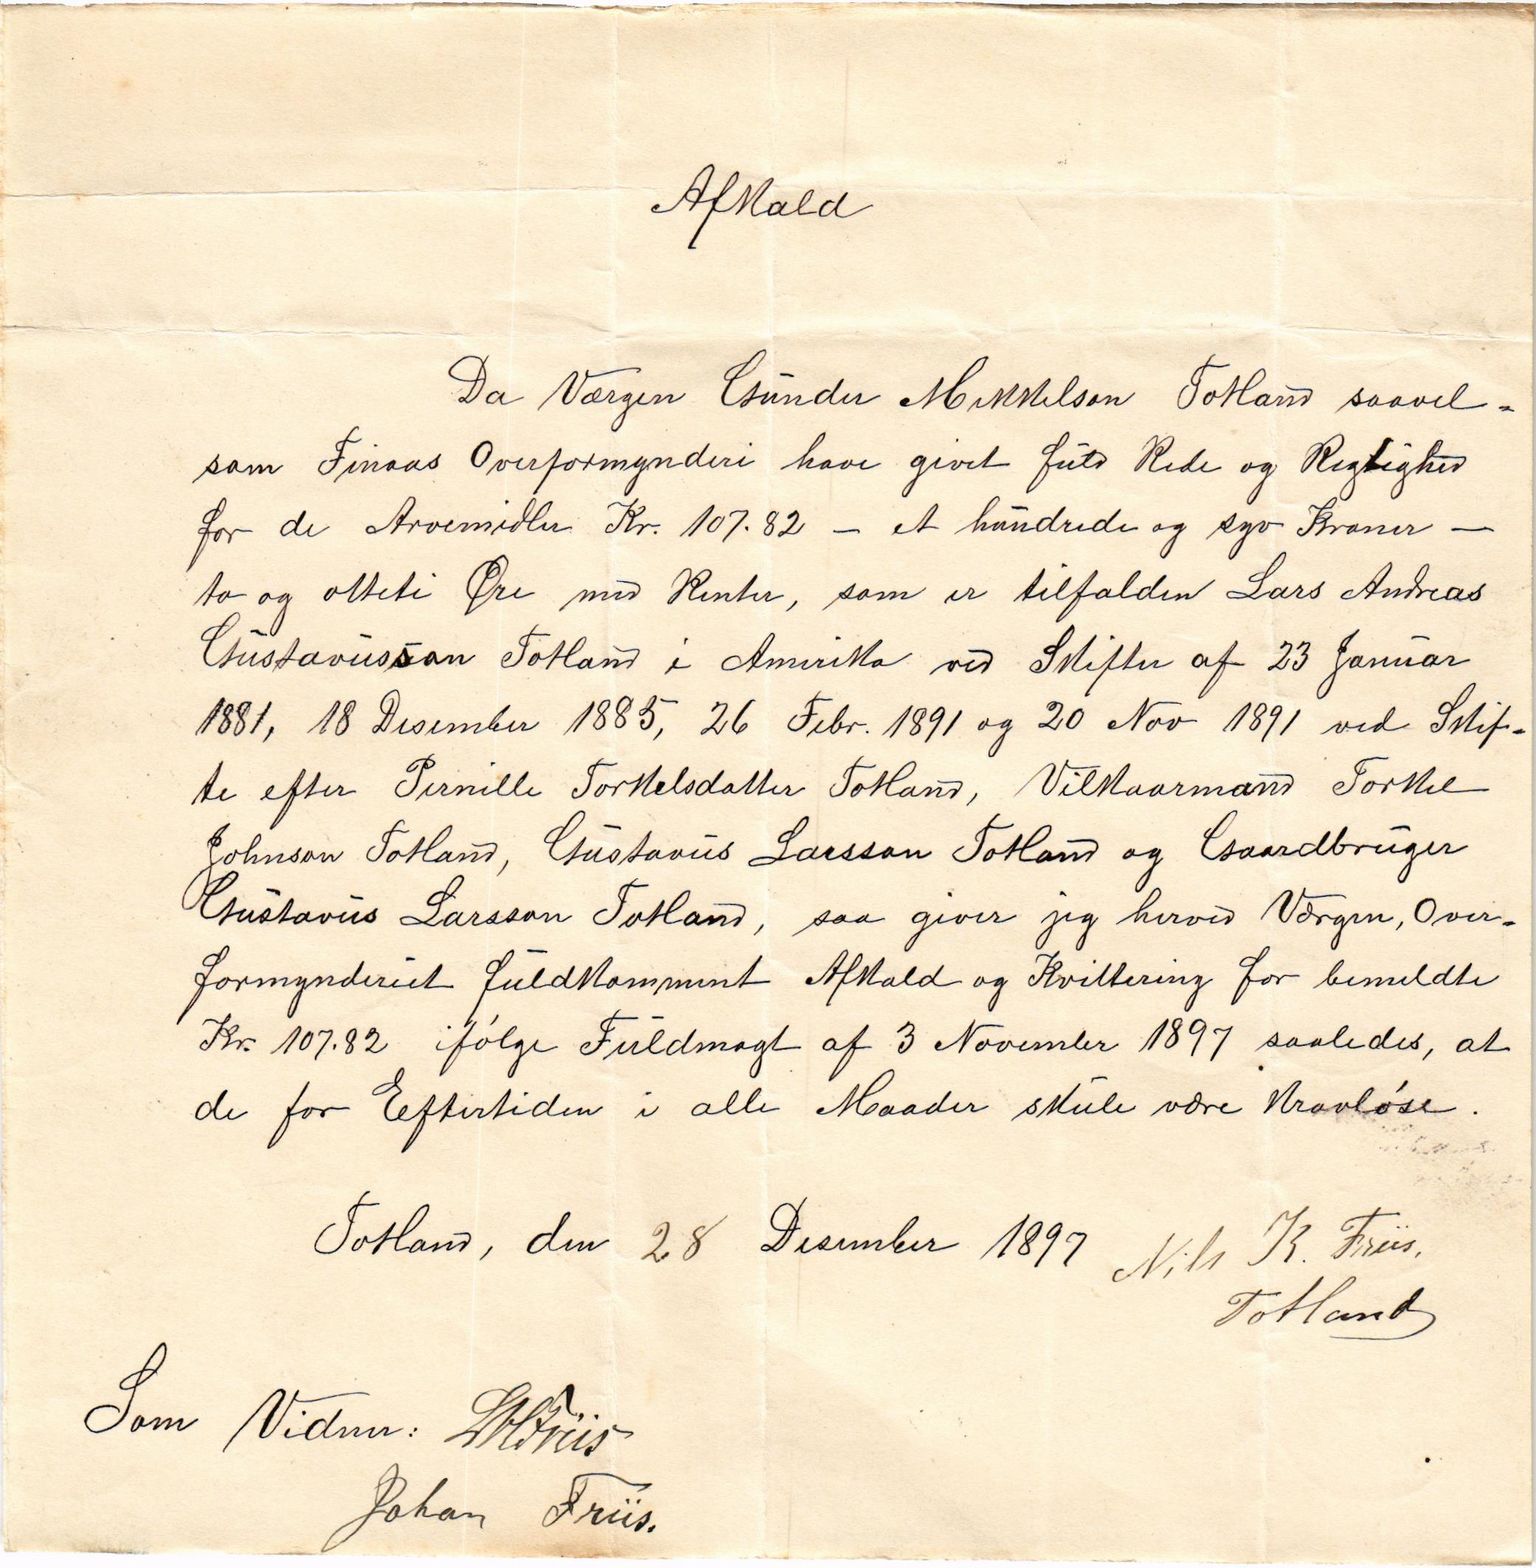 Afkald
Da Værgen Gunder Mikkelson Totland saavel-
som Finaas Overformynderi have givet fuld Rede og Rigtighed
for de Arvemidler Kr. 107.82 — et hundrede og syv Kroner —
to og otteti Øre med Renter, som er tilfalden Lars Andreas
Gustavusson Totland i Amerika ved Skifter af 23 Januar
1881, 18 Desember 1885, 26 Febr. 1891 og 20 Nov 1891 ved Skif-
te efter Pernille Torkelsdatter Totland, Vilkaarmand Torkel
Johnson Totland, Gustavus Larsson Totland og Gaardbruger
Gustavus Larsson Totland, saa giver jeg herved Værgen, Over-
formynderiet fuldkomment Afkald og Kvittering for bemeldte
Kr. 107.82 ifølge Fuldmagt af 3 November 1897 saaledes, at
de for Eeftertiden i alle Maader skule være kravløse.
Totland, den 28 Desember 1897 Nils K. Friis.
Totland
Som Vidner: Friis
Johan Friis.